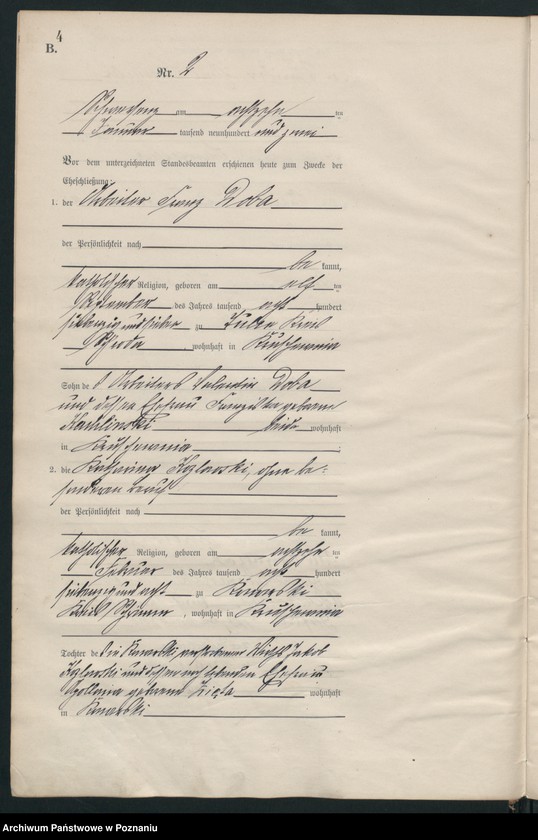 4
B.
Nr. 2
am achtzehn ten
Januar tausend neunhundert und zwei
Vor dem unterzeichneten Standesbeamten erschienen heute zum Zwecke der
Eheschließung:
1. der Arbeiter Franz Doba
der Persönlichkeit nach
be kannt,
katholischer Religion, geboren am elf ten
September des Jahres tausend acht hundert
siebenzig und sieben zu Kreis
Schroda, wohnhaft in
Sohn des Arbeiters Valentin Doba
und dessen Ehefrau geborene
beide wohnhaft
in
2. die Katharina Kozlowski, ohne be-
sonderen Beruf
der Persönlichkeit nach
be kannt,
katholischer Religion, geboren am achtzehn ten
Februar des Jahres tausend acht hundert
siebenzig und acht zu Kowalski
Kreis, wohnhaft in
Tochter des in Kowalski verstorbenen Wirths Jakob
Kozlowski und dessen noch lebenden Ehefrau
Apollonia geborene wohnhaft
in Kowalski
Archiwum Państwowe w Poznaniu